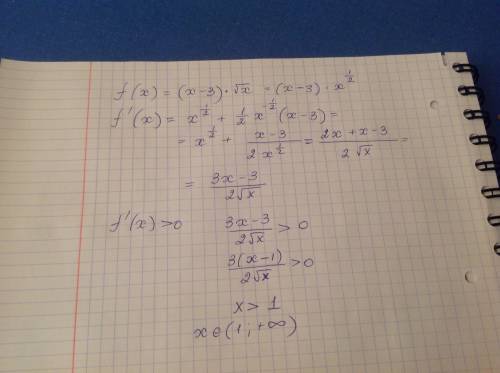 f(x) = (x-3)·√x = (x-3)·x^{1/2}
f'(x) = x^{1/2} + 1/2 x^{-1/2}(x-3) =
= x^{1/2} + (x-3)/(2x^{1/2}) = (2x+x-3)/(2√x) =
= (3x-3)/(2√x)
f'(x)>0 (3x-3)/(2√x) > 0
3(x-1)/(2√x) > 0
x > 1
x∈(1,+∞)